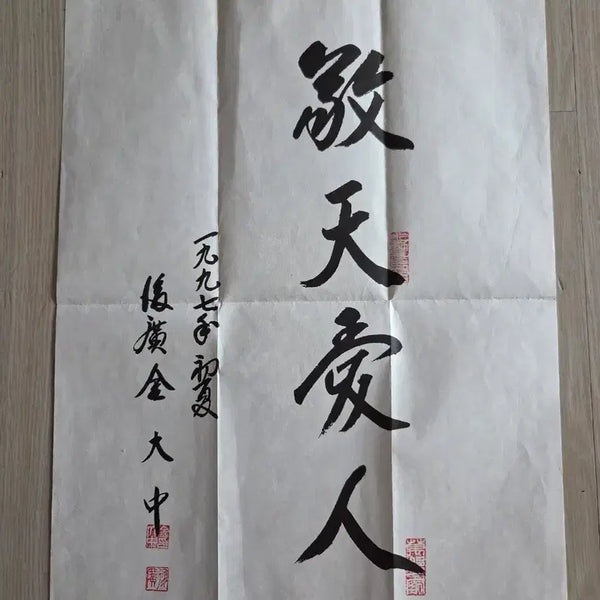 敬天愛人
一九九七年 初夏
後廣 金大中